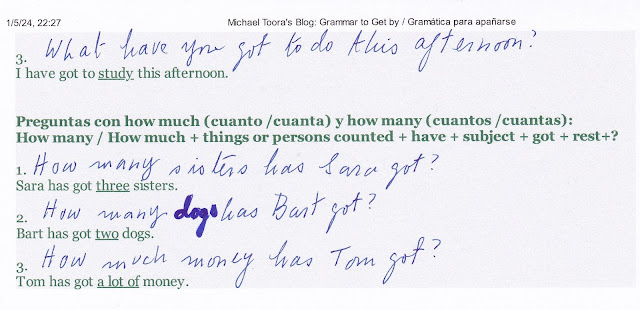 1/5/24, 22:27 Michael Toora's Blog: Grammar to Get by / Gramática para apañarse
3. What have you got to do this afternoon?
I have got to study this afternoon.
Preguntas con how much (cuanto /cuanta) y how many (cuantos /cuantas):
How many / How much + things or persons counted + have + subject + got + rest+?
1. How many sisters has Sara got?
Sara has got three sisters.
2. How many dogs has Bart got?
Bart has got two dogs.
3. How much money has Tom got?
Tom has got a lot of money.